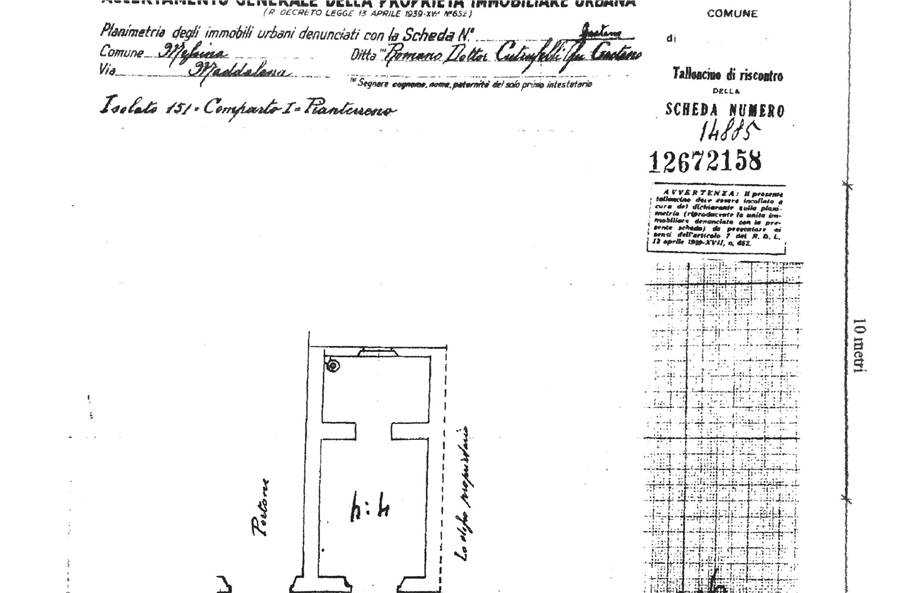 ACCERTAMENTO GENERALE DELLA PROPRIETÀ IMMOBILIARE URBANA
(R. DECRETO LEGGE 13 APRILE 1939-XVII N°652)
Planimetria degli immobili urbani denunciati con la Scheda N.°
Comune Messina Ditta (1) Romano Dottor Gaetano
Via Maddalena
(1) Segnare cognome, nome, paternità del solo primo intestatario
Isolato 151 = Comparto I = Pianterreno
COMUNE
di
Talloncino di riscontro
DELLA
SCHEDA NUMERO
14885
12672158
AVVERTENZA: Il presente
talloncino deve essere incollato a
cura del dichiarante sulla plani-
metria (riproducente la unità im-
mobiliare denunciata con la pre-
sente scheda) da presentare ai
sensi dell'articolo 7 del R. D. L.
13 aprile 1939-XVII, n. 652.
10 metri
Portone
Lo stesso proprietario